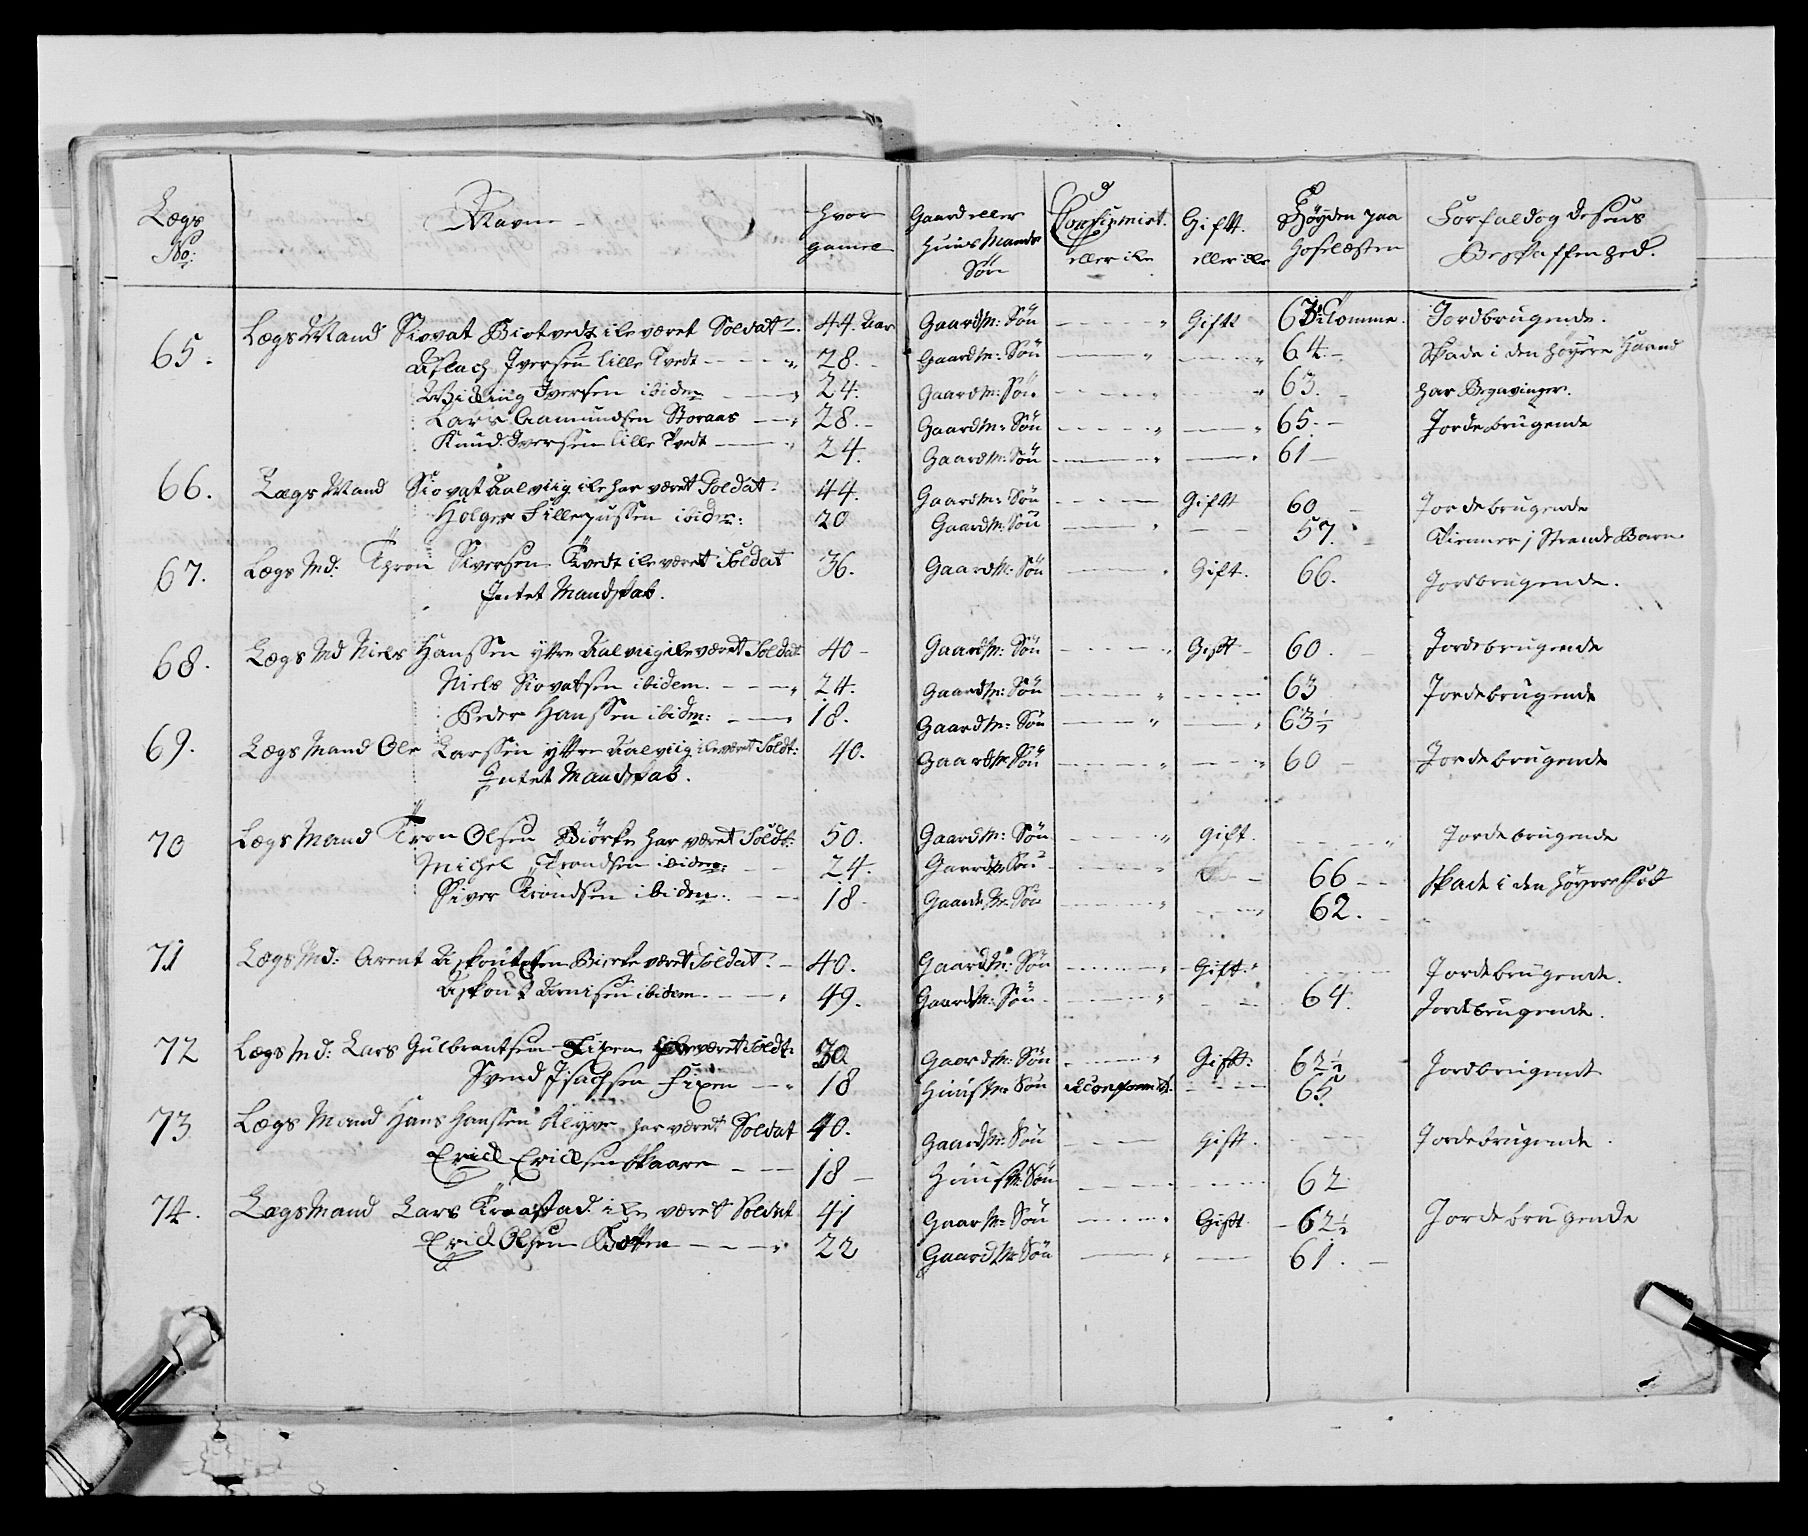 Lægs No: | Navne | Hvor gamel | Gaard eller Huus Mands Søn | Confirmirt eller ike | Gift eller ike | Høyden paa Hoselæsten | Forfald og deßens Beskaffenhed.
65. Lægs Mand Siovat Biotvedt ike været Soldat 44 Aar Gaardm: Søn Gift 63 Tomme. Jordbrugende.
Aslach Iversen lille Tvedt 28. Gaardm: Søn 64. Skade i den høyere Haand
Iversen ibidem 24. Gaardm: Søn 63. har Begavinger.
Lars Aamundsen Storaas 28. Gaardm: Søn 65. Jordebrugende
Knud Iverssen lille Tvedt 24. Gaardm: Søn 61
66. Lægs Mand Siovat Aalviig ike har været Soldat. 44. Gaardm: Søn Gift 60 Jordebrugende
Holger ibidem: 20 Gaardm: Søn 57. Tienner i Strande Barn
67. Lægs Md: Thron Siversen Tvedt ike været Soldat 36. Gaardm: Søn Gift. 66. Jordbrugende.
Intet Mandskab.
68. Lægs Md Niels Hanssen yttre Aalviig ike været Soldat 40 Gaardm: Søn Gift 60. Jordebrugende
Niels Siovatsen ibidem. 24. Gaardm: Søn 63 Jordebrugende
Peder Hanssen ibidem: 18. Gaardm: Søn 63½
69. Lægs Mand Ole Larssen yttre Aalviig ike været Soldt: 40. Gaardm: Søn 60 Jordebrugende
Intet Mandskab.
70 Lægs Mand Tron Olsen Biørke har været Soldt: 50. Gaardm: Søn Gift. Jordebrugende
Michel Trondsen ibidem: 24. Gaardm: Søn 66 skade i den høyere Fod
Siver Trondsen ibidem. 18. Gaardm: Søn 62.
71 Lægs Md: Arent Birke været Soldat. 40. Gaardm: Søn Gift. Jordebrugende.
Arnisen ibidem. 49. Gaardm: Søn 64. Jordebrugende.
72 Lægs Md: Lars Gulbrantsen Fixen været Soldt: 30 Gaardm: Søn Gift: 62½ Jordbrugende
Svend Isachsen Fixen 18 Huusm: Søn 65
73 Lægs Mand Hans Hanssen har været Soldat 40. Gaardm: Søn Gift. Jordebrugende.
Erick Ericksen Skaare 18 Huusm: Søn 62
74. Lægs Mand Lars Traastad ike været Soldat 41 Gaarm: Søn Gift. 62½ Jordebrugende
Erick Olsen Botten 22 Gaardm: Søn 61.